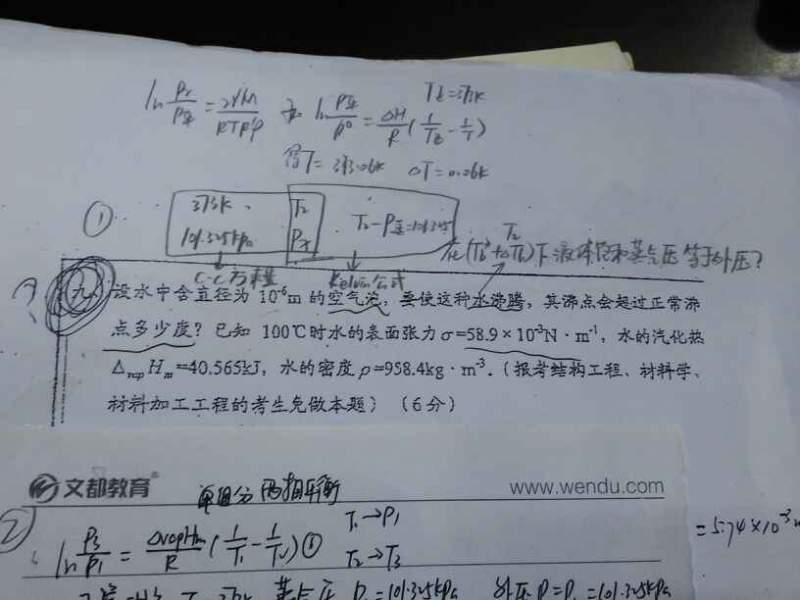 ln Pr/P平 = 2γM/RTR'ρ 和 ln P平/P⁰ = ΔH/R (1/Tb - 1/T) Tb=373K
得T= 393.06K ΔT=0.06K
① 373K、 T₂ T₂-P平=101.325
101.325kPa Pr T₂
C-C方程 Kelvin公式 下液体的饱和蒸气压等于外压?
?九、设水中含直径为 10⁻⁶m 的空气泡，要使这种水沸腾，其沸点会超过正常沸
点多少度？已知 100℃时水的表面张力σ=58.9×10⁻³N·m⁻¹，水的汽化热
ΔvapHm=40.565kJ，水的密度ρ=958.4kg·m⁻³.（报考结构工程、材料学、
材料加工工程的考生免做本题）（6分）
文都教育® 单组分两相平衡 www.wendu.com
② ln P₃/P₁ = ΔvapHm/R (1/T₁ - 1/T₂) ① T₁→P₁ =5.74×10⁻³
T₂→T₃
蒸气压 P₁=101.325kPa 外压P=P₁=101.325kPa